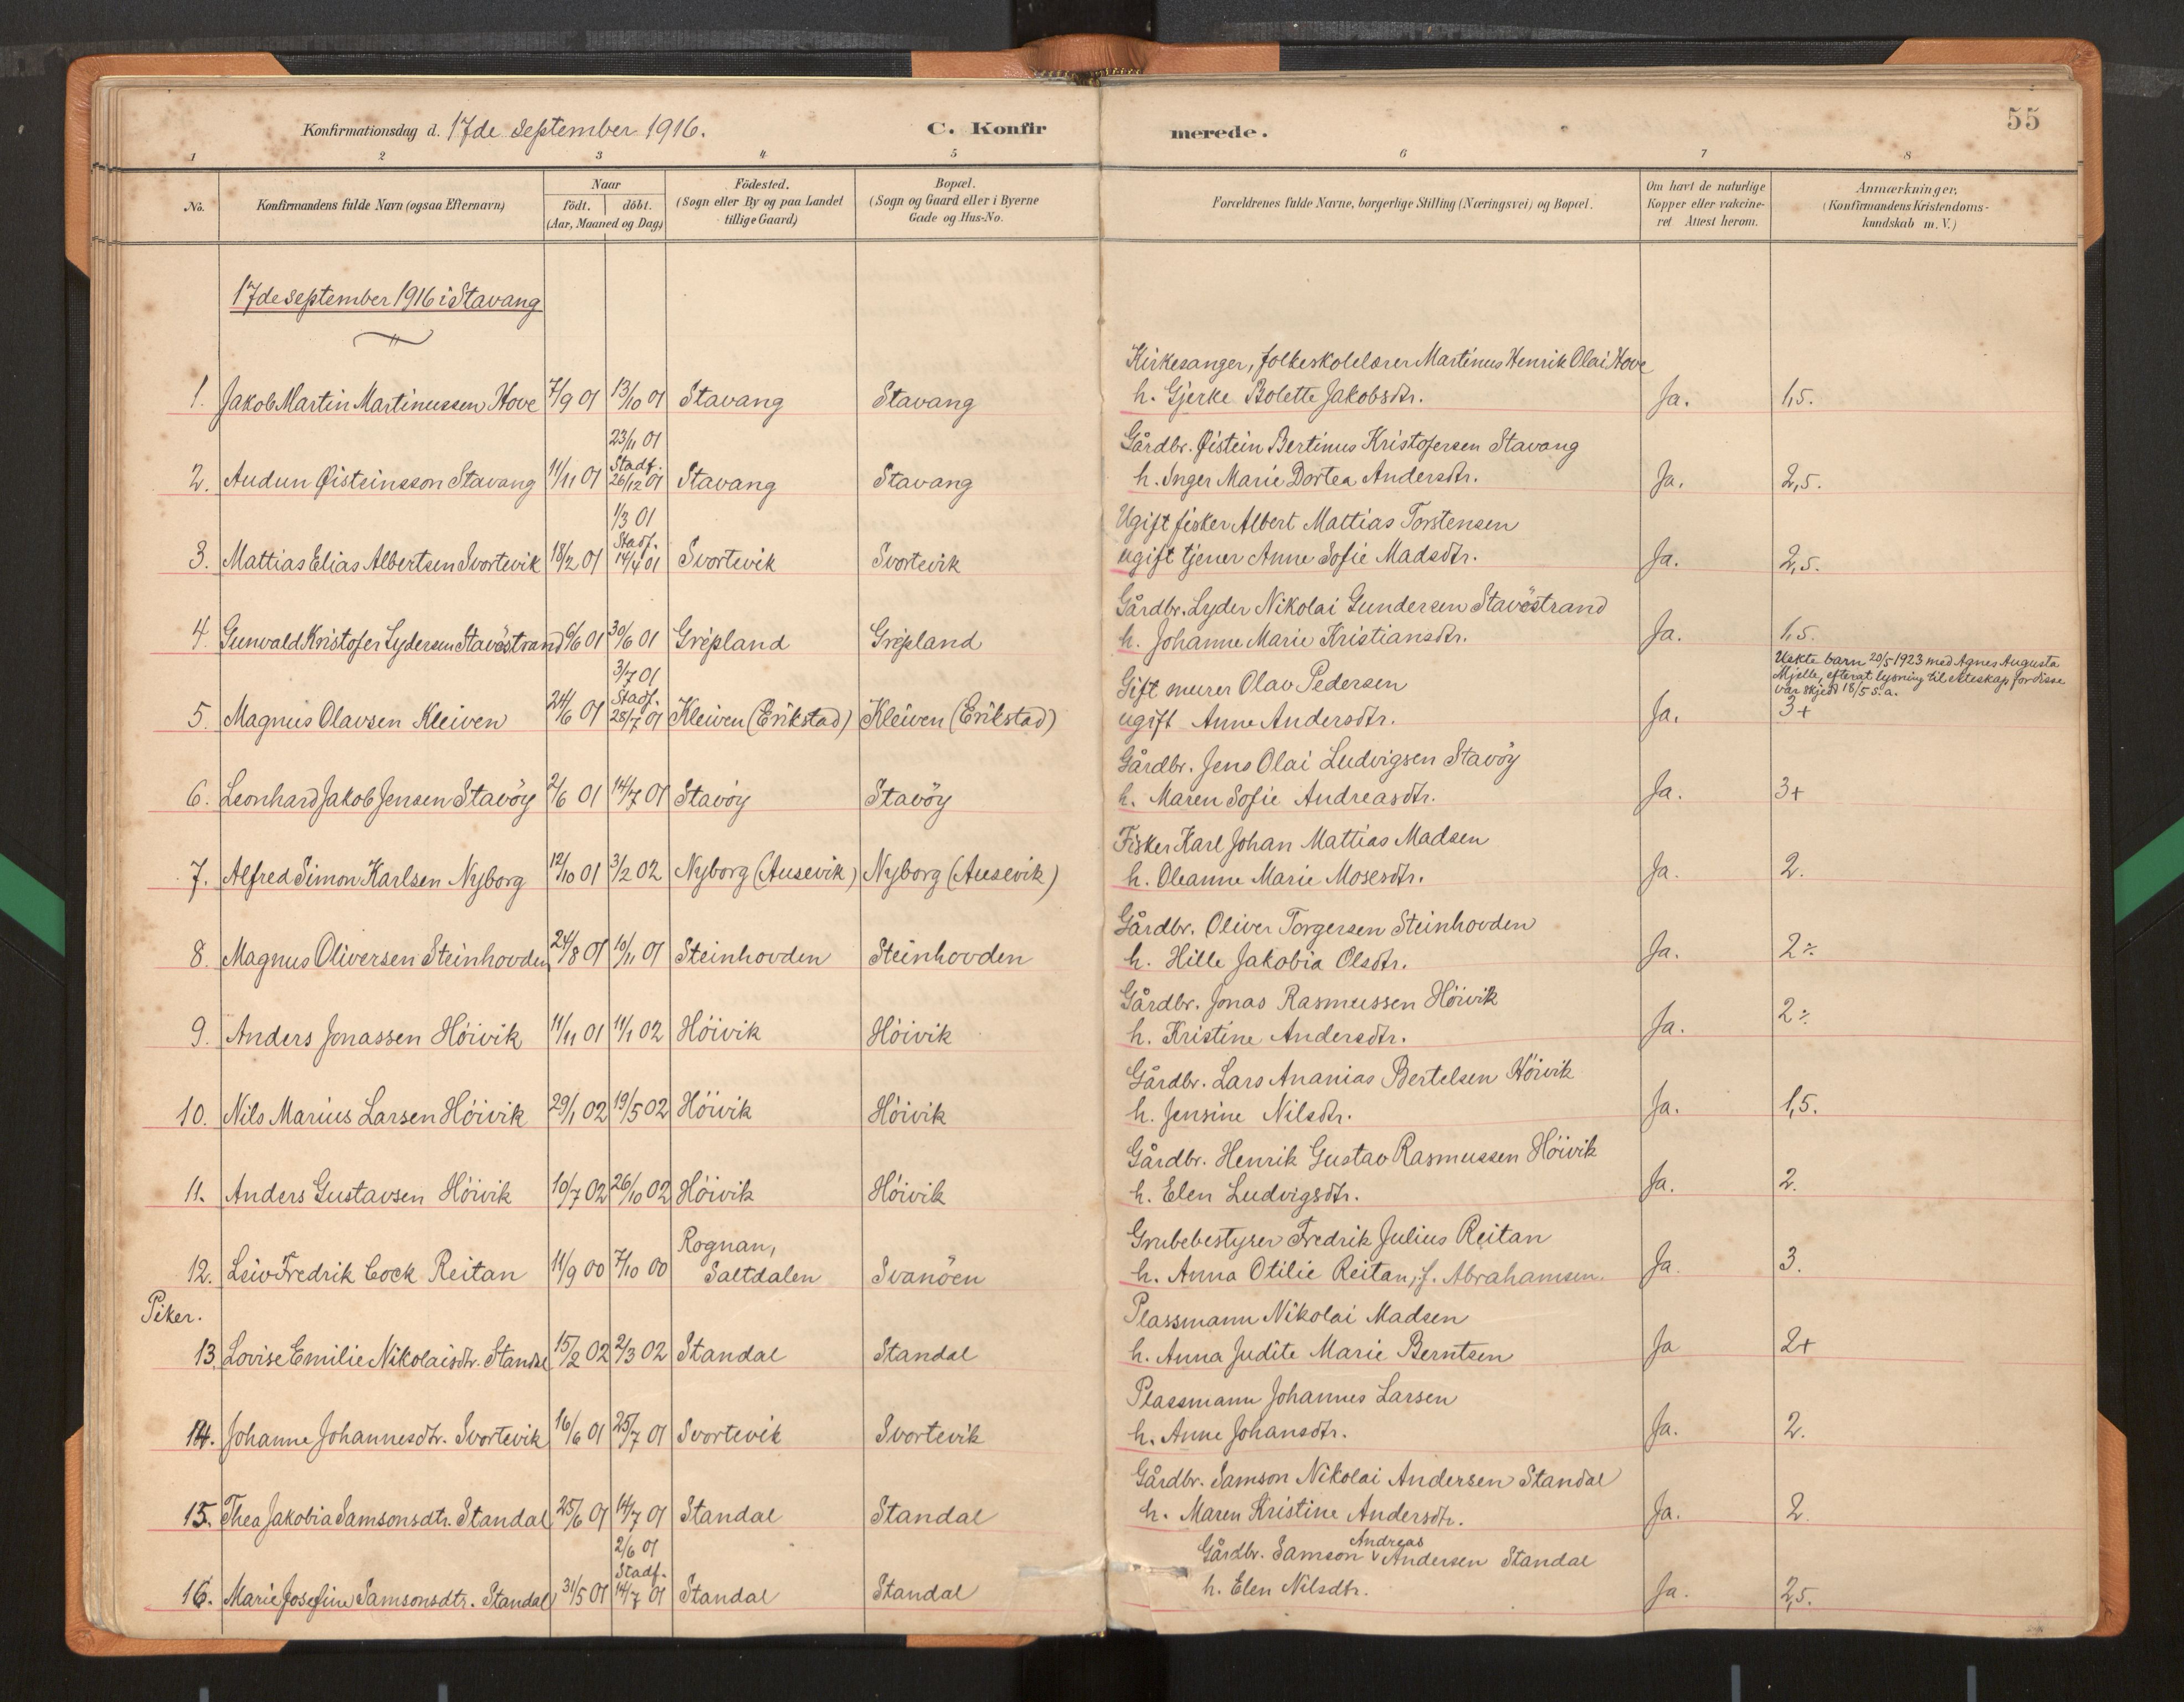 55
Konfirmationsdag d. 17de september 1916.
C. Konfirmerede.
1 2 3 4 5 6 7 8
No.
Konfirmandens fulde Navn (ogsaa Efternavn)
Naar
födt. döbt.
(Aar, Maaned og Dag)
Födested.
(Sogn eller By og paa Landet
tillige Gaard)
Bopæl.
(Sogn og Gaard eller i Byerne
Gade og Hus-No.
Forældrenes fulde Navne, borgerlige Stilling (Næringsvei) og Bopæl.
Om havt de naturlige
Kopper eller vakcine-
ret Attest herom.
Anmærkninger,
(Konfirmandens Kristendoms-
kundskab m. V.)
17de september 1916 i Stavang
Kirkesanger, folkeskolelærer Martinus Henrik Olai Hove
1. Jakob Martin Martinussen Hove 7/9 01 13/10 01 Stavang Stavang h. Gjerke Bolette Jakobsdtr. Ja. 1,5.
23/11 01 Gårdbr. Øistein Bertinus Kristofersen Stavang
Stadf.
2. Audun Øisteinsson Stavang 11/11 01 26/12 01 Stavang Stavang h. Inger Marie Dortea Andersdtr. Ja. 2,5.
1/3 01 Ugift fisker Albert Mattias Torstensen
Stadf.
3. Mattias Elias Albertsen Svortevik 18/2 01 14/4 01 Svortevik Svortevik ugift tjener Anne Sofie Madsdtr. Ja. 2,5.
Gårdbr. Lyder Nikolai Gundersen Stavöstrand
4. Gunvald Kristofer Lydersen Stavöstrand 6/6 01 30/6 01 Grepland Grepland h. Johanne Marie Kristiansdtr. Ja. 1,5.
Uekte barn 20/5 1923 med Agnes Augusta
Mjelle, efterat lysning til ekteskap for disse
var skjedd 18/5 s. a.
3/7 01 Gift murer Olav Pedersen
Stadf.
5. Magnus Olavsen Kleiven 24/6 01 28/7 01 Kleiven (Erikstad) Kleiven (Erikstad) ugift Anne Andersdtr. Ja. 3+
Gårdbr. Jens Olai Ludvigsen Stavöy
6. Leonhard Jakob Jensen Stavöy 2/6 01 14/7 01 Stavöy Stavöy h. Maren Sofie Andreasdtr. Ja. 3+
Fisker Karl Johan Mattias Madsen
7. Alfred Simon Karlsen Nyborg 12/10 01 3/2 02 Nyborg (Ausevik) Nyborg (Ausevik) h. Oleanne Marie Mosesdtr. Ja. 2.
Gårdbr. Oliver Torgersen Steinhovden
8. Magnus Oliversen Steinhovden 24/8 01 10/11 01 Steinhovden Steinhovden h. Hille Jakobia Olsdtr. Ja. 2 ÷
Gårdbr. Jonas Rasmussen Höivik
9. Anders Jonassen Höivik 11/11 01 11/1 02 Höivik Höivik h. Kristine Andersdtr. Ja. 2 ÷
Gårdbr. Lars Ananias Bertelsen Höivik
10. Nils Marius Larsen Höivik 29/1 02 19/5 02 Höivik Höivik h. Jensine Nilsdtr. Ja. 1,5.
Gårdbr. Henrik Gustav Rasmussen Höivik
11. Anders Gustavsen Höivik 10/7 02 26/10 02 Höivik Höivik h. Elen Ludvigsdtr. Ja. 2.
Rognan, Grubebestyrer Fredrik Julius Reitan
12. Leiv Fredrik Cock Reitan 11/9 00 7/10 00 Saltdalen Svanöen h. Anna Otilie Reitan, f. Abrahamsen. Ja. 3.
Piker. Plassmann Nikolai Madsen
13. Lovise Emilie Nikolaisdtr. Standal 15/2 02 2/3 02 Standal Standal h. Anna Judite Marie Berntsen Ja 2+
Plassmann Johannes Larsen
14. Johanne Johannesdtr. Svortevik 16/6 01 25/7 01 Svortevik Svortevik h. Anne Johansdtr. Ja. 2.
Gårdbr. Samson Nikolai Andersen Standal
15. Thea Jakobia Samsonsdtr. Standal 25/6 01 14/7 01 Standal Standal h. Maren Kristine Andersdtr. Ja. 2.
2/6 01 Gårdbr. Samson Andreas Andersen Standal
Stadf.
16. Marie Josefine Samsonsdtr. Standal 31/5 01 14/7 01 Standal Standal h. Elen Nilsdtr. Ja. 2,5.